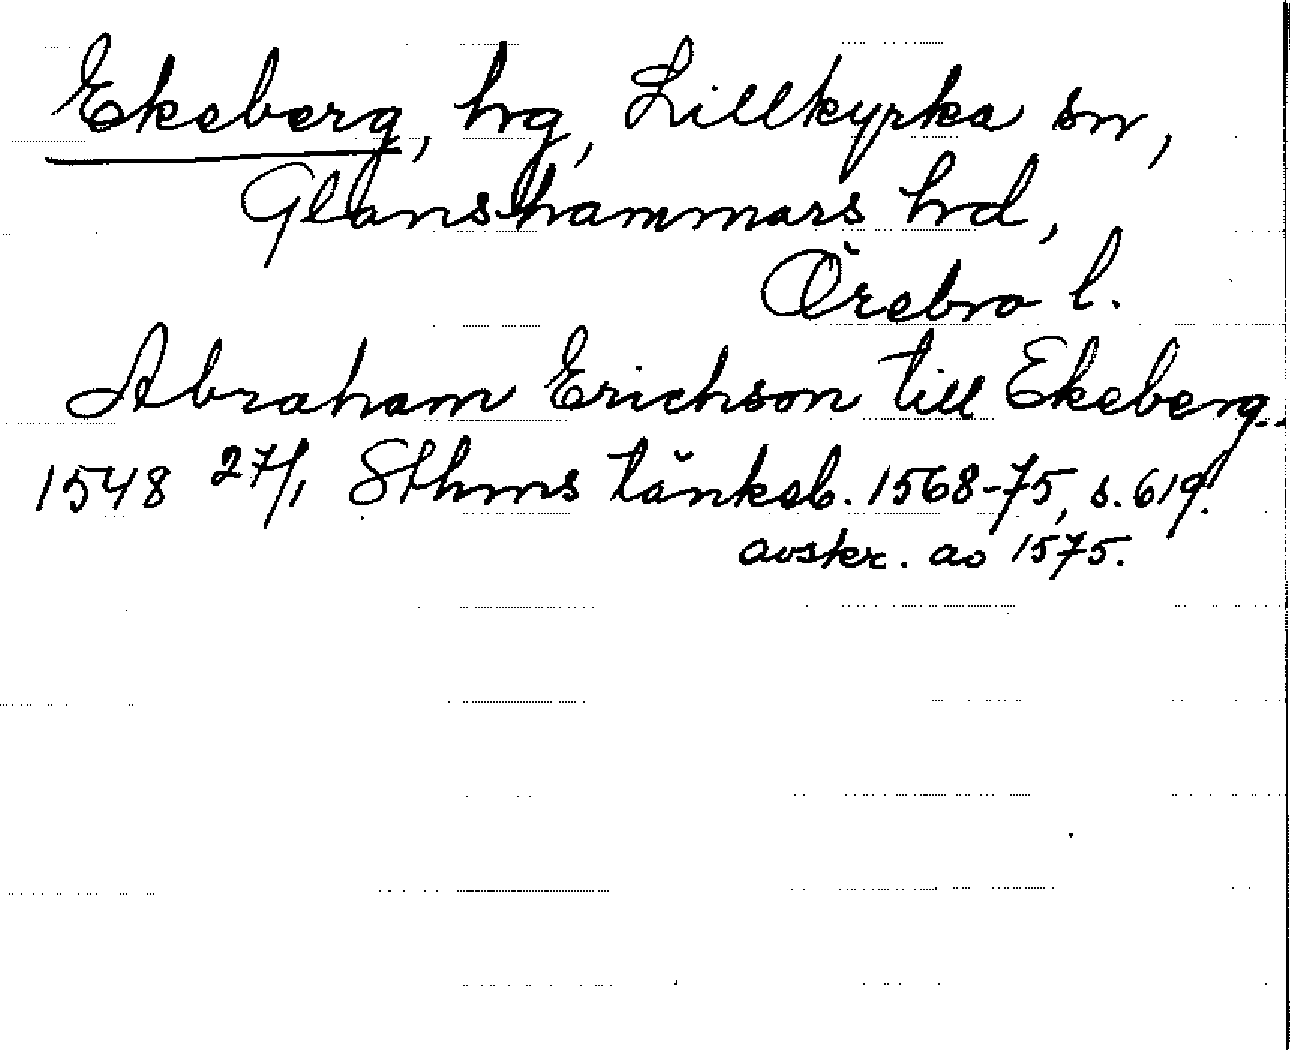 Ekeberg, hg, Lillkyrka sn,
Glanshammars hd,
Örebro l.
Abraham Erichson till Ekeberg.
1548 27/1 Sthms tänkeb. 1568-75, s. 619.
avskr. ao 1575.